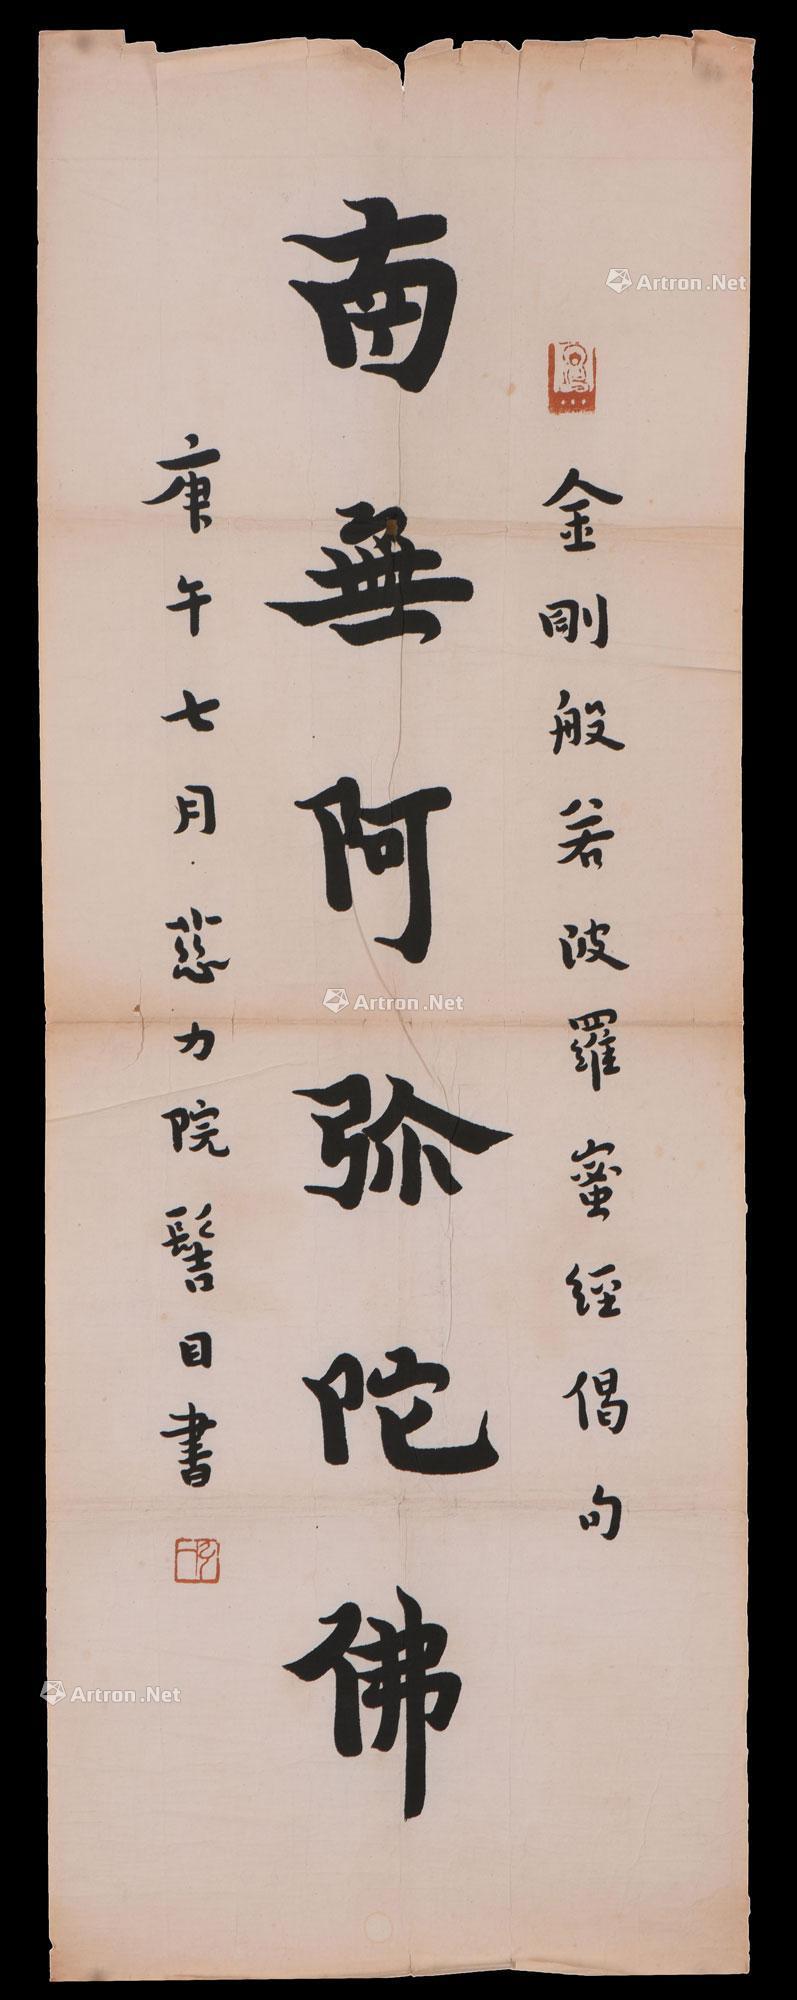 金剛般若波羅蜜經偈句
南無阿弥陀佛
庚午七月慈力院髻目書
Artron.Net
Artron.Net
Artron.Net